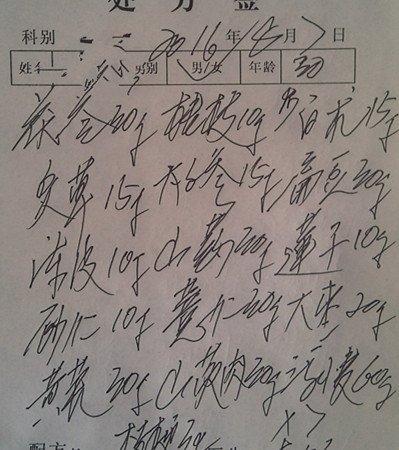 处方签
科别 2016年 月7日
姓名 男别 男/女 年龄 30
茯苓30g 桂枝10g 炒白术15g
炙草15g 太子参15g 扁豆30g
陈皮10g 山药30g 莲子10g
砂仁10g 薏仁30g 大枣20g
黄芪30g 山萸肉30g 浮小麦60g
配方 30g ×7